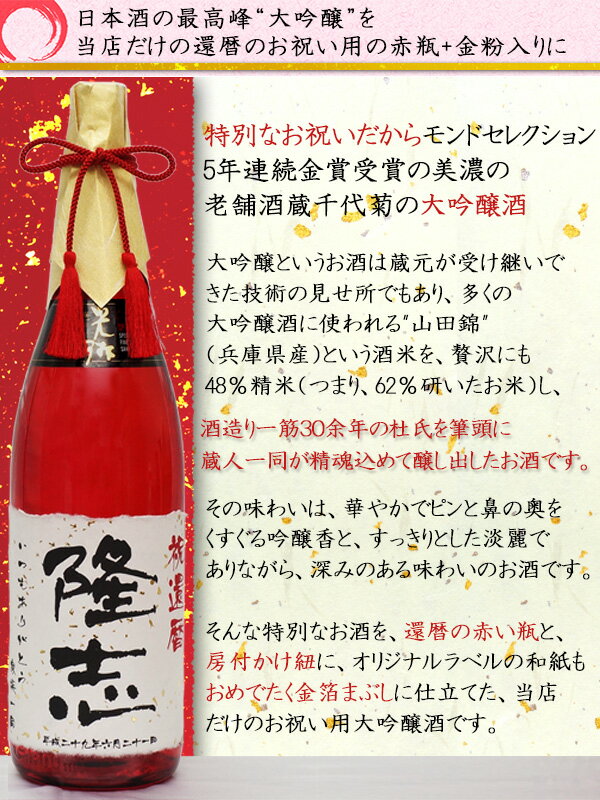 日本酒の最高峰“大吟醸”を
当店だけの還暦のお祝い用の赤瓶+金粉入りに
特別なお祝いだからモンドセレクション
5年連続金賞受賞の美濃の
老舗酒蔵千代菊の大吟醸酒
大吟醸というお酒は蔵元が受け継いで
きた技術の見せ所でもあり、多くの
大吟醸酒に使われる"山田錦"
(兵庫県産)という酒米を、贅沢にも
48%精米(つまり、62%研いたお米)し、
酒造り一筋30余年の杜氏を筆頭に
蔵人一同が精魂込めて醸し出したお酒です。
その味わいは、華やかでピンと鼻の奥を
くすぐる吟醸香と、すっきりとした淡麗で
ありながら、深みのある味わいのお酒です。
そんな特別なお酒を、還暦の赤い瓶と、
房付かけ紐に、オリジナルラベルの和紙も
おめでたく金箔まぶしに仕立てた、当店
だけのお祝い用大吟醸酒です。
祝還暦
隆志
いつもありがとう
平成二十九年六月二十一日